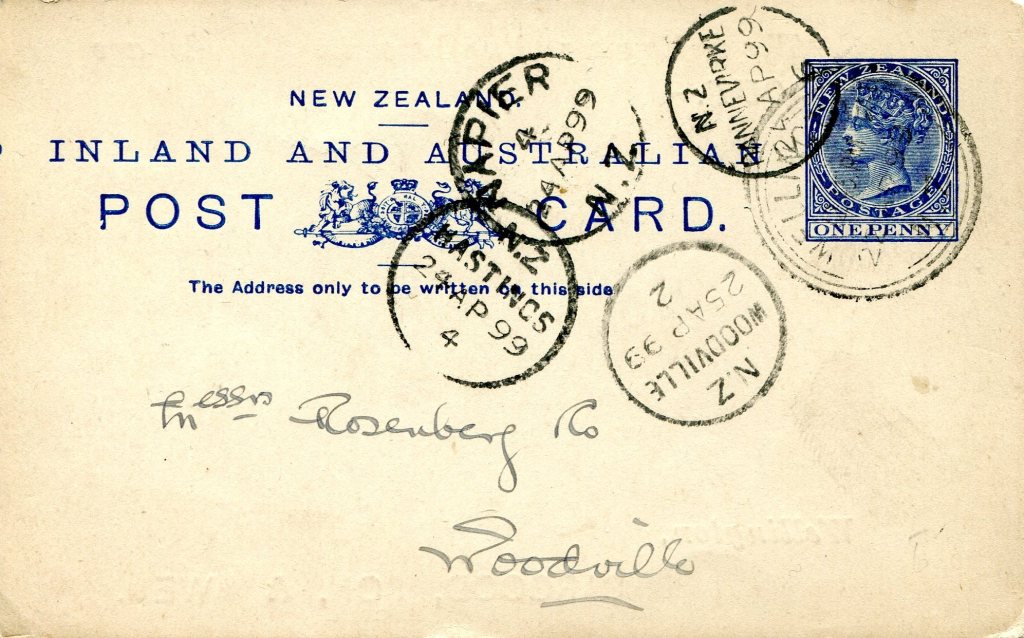 NEW ZEALAND.
INLAND AND AUSTRALIAN
POST CARD.
The Address only to be written on this side
NEW ZEALAND
POSTAGE
ONE PENNY
N.Z
DANNEVIRKE
AP 99
NAPIER
4
24 AP 99
N.Z
N.Z
HASTINGS
24 AP 99
4
N.Z
WOODVILLE
25 AP 99
2
Messrs Rosenberg & Co
Woodville